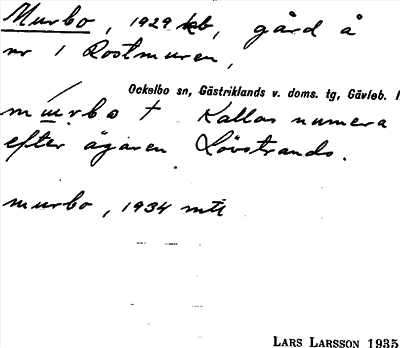 Murbo, 1929 kb, gård å
nr 1 Rostmuren,
Ockelbo sn, Gästriklands v. doms. tg, Gävleb. l
murbo † Kallas numera
efter ägaren Lövstrands.
murbo, 1934 mtl
LARS LARSSON 1935